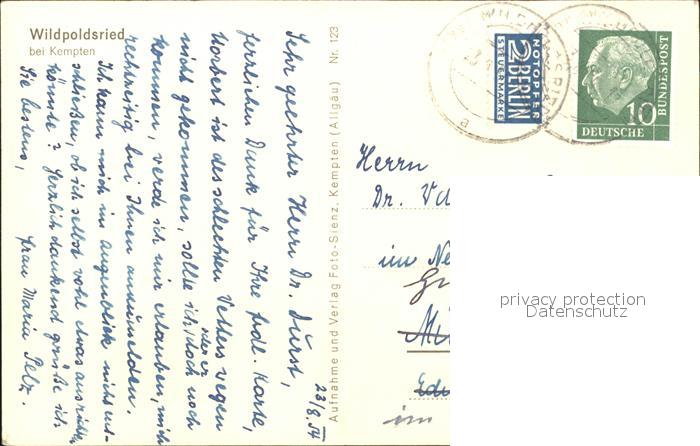 Wildpoldsried
bei Kempten
Aufnahme und Verlag Foto-Sienz, Kempten (Allgäu) Nr. 123
23/8.54
Sehr geehrter Herr Dr. Durst,
herzlichen Dank für Ihre frdl. Karte,
Norbert ist des schlechten Wetters wegen
nicht gekommen, sollte ich oder er doch noch
kommen, werde ich mir erlauben, mich
rechtzeitig bei Ihnen anzumelden.
Ich kann mich im Augenblick nicht ent-
schließen, ob ich selbst wohl etwas ausrichten
könnte? Herzlich dankend grüße ich
Sie bestens,
Frau Maria Pelz.
NOTOPFER
2 BERLIN
STEUERMARKE
10
DEUTSCHE
BUNDESPOST
Herrn
Dr.
im
im
privacy protection
Datenschutz